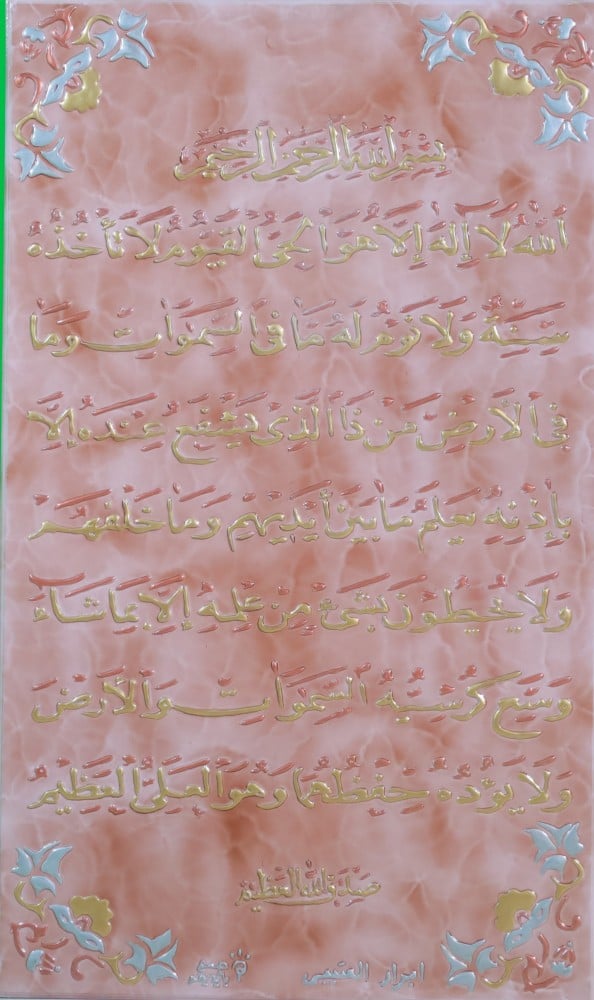 بِسْمِ اللهِ الرَّحْمٰنِ الرَّحِيْمِ
اَللّٰهُ لَا اِلٰهَ اِلَّا هُوَ الْحَيُّ الْقَيُّوْمُ لَا تَأْخُذُهٗ
سِنَةٌ وَّلَا نَوْمٌ لَهٗ مَا فِي السَّمٰوَاتِ وَمَا
فِي الْاَرْضِ مَنْ ذَا الَّذِيْ يَشْفَعُ عِنْدَهٗ اِلَّا
بِاِذْنِهٖ يَعْلَمُ مَا بَيْنَ اَيْدِيْهِمْ وَمَا خَلْفَهُمْ
وَلَا يُحِيْطُوْنَ بِشَيْءٍ مِّنْ عِلْمِهٖ اِلَّا بِمَا شَاءَ
وَسِعَ كُرْسِيُّهُ السَّمٰوَاتِ وَالْاَرْضَ
وَلَا يَؤُدُهٗ حِفْظُهُمَا وَهُوَ الْعَلِيُّ الْعَظِيْمُ
صَدَقَ اللهُ الْعَظِيْم
ابرار